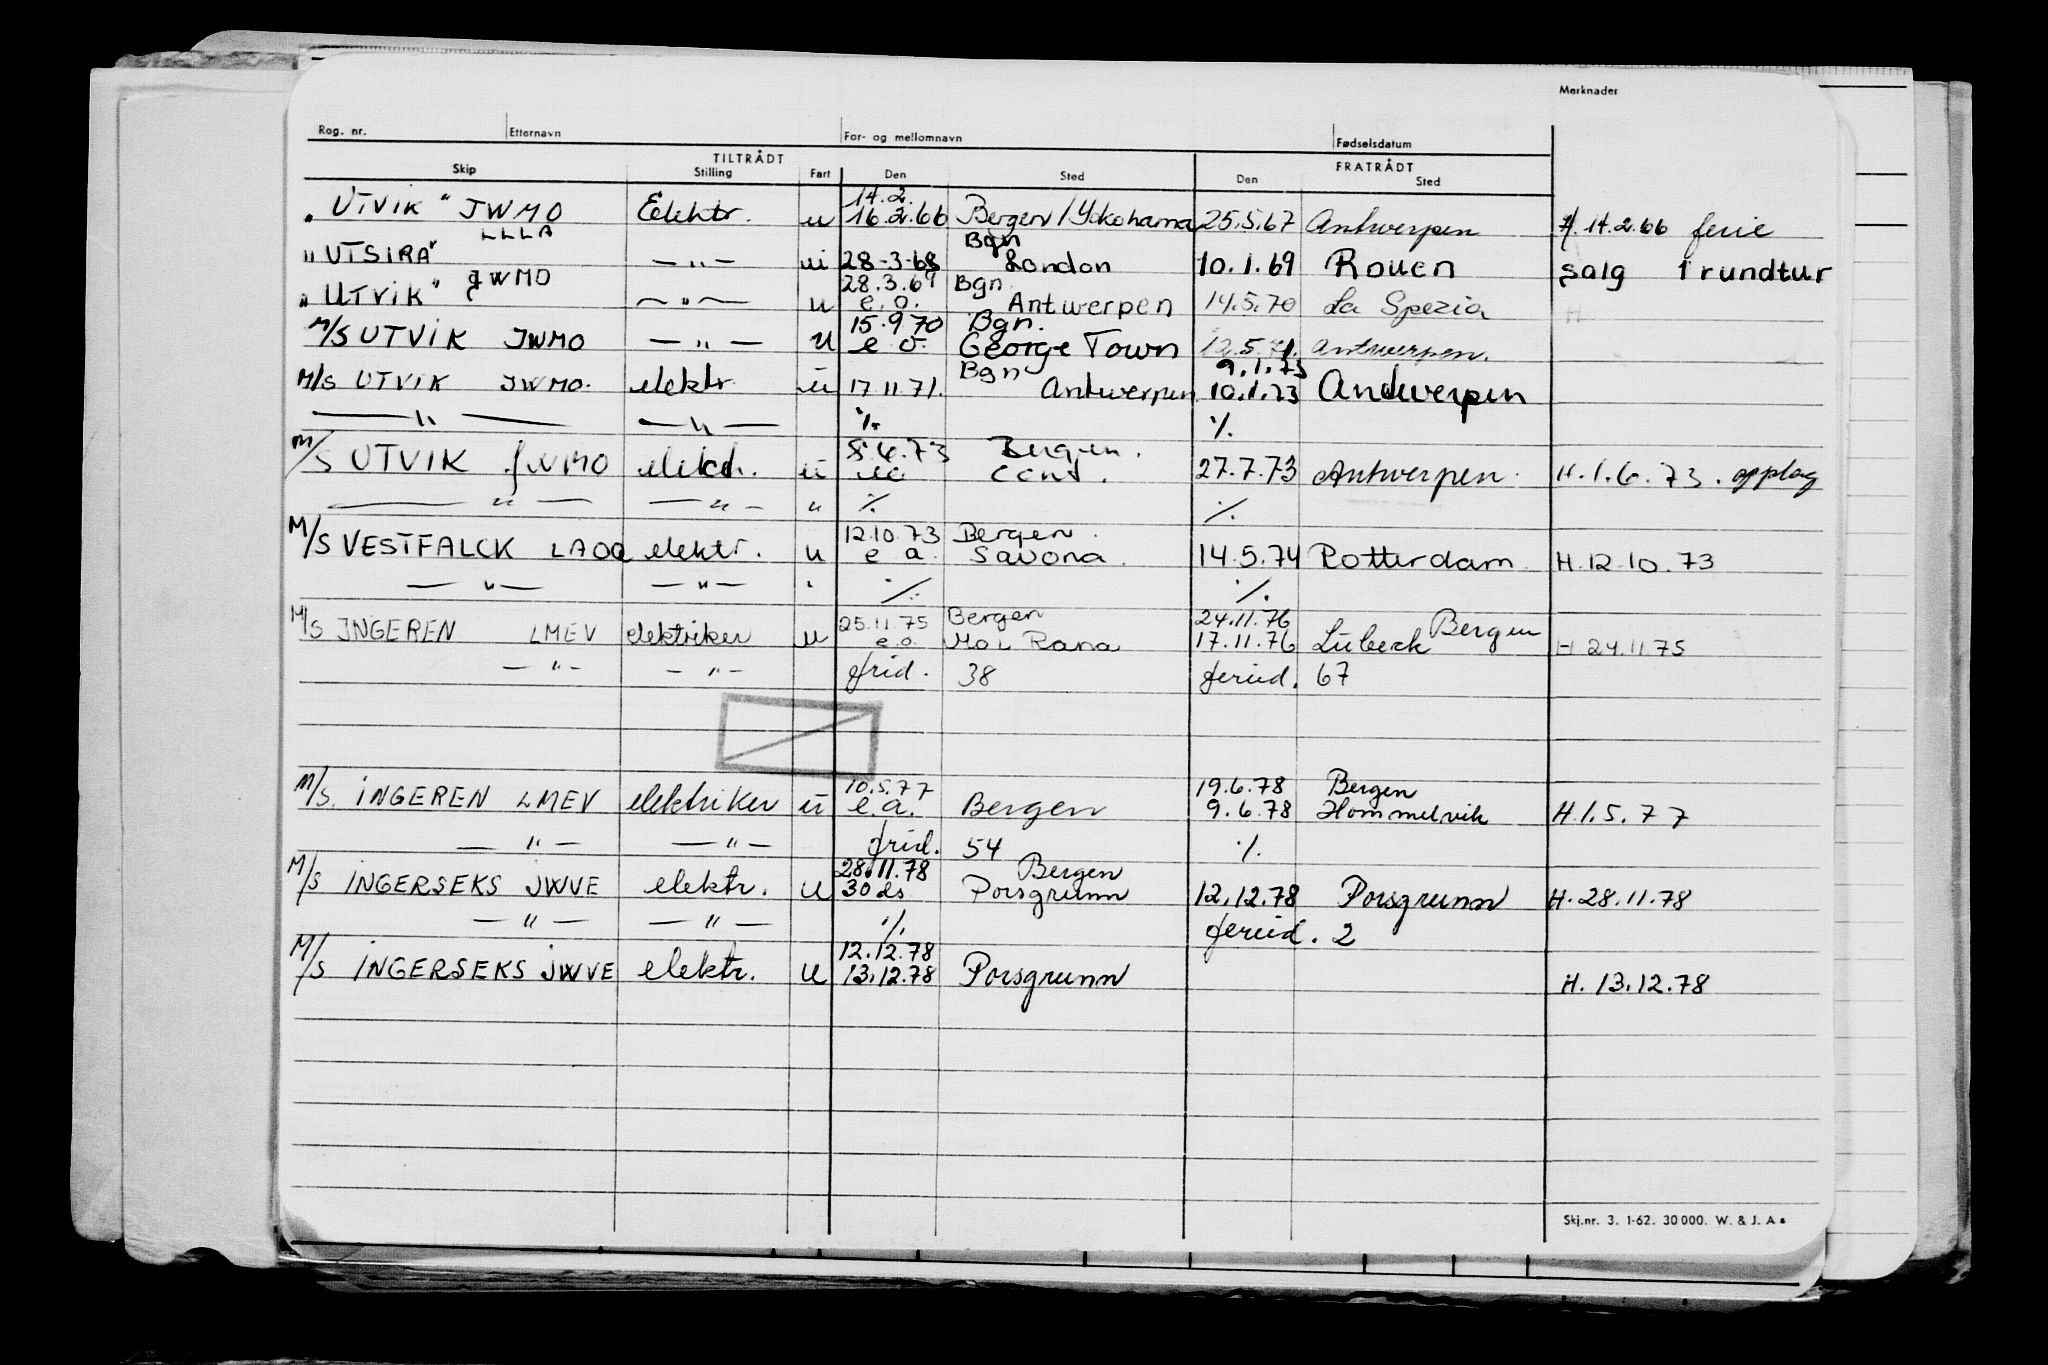 Merknader
Reg. nr. Etternavn For- og mellomnavn Fødselsdatum
TILTRÅDT FRATRÅDT
Skip Stilling Fart Den Sted Den Sted
14.2.
"UTVIK" JWMO Elektr. u 16.2.66 Bergen/Yokohama 25.5.67 Antwerpen H. 14.2.66 ferie
LLLA Bgn
"UTSIRA" — " — u 28-3-68 London 10.1.69 Rouen salg 1 rundtur
JWMO 28.3.69 Bgn
"UTVIK" — " — u e.o. Antwerpen 14.5.70 La Spezia H
15.9 70 Bgn.
M/S UTVIK JWMO — " — u e o. George Town 12.5.71. Antwerpen.
Bgn 9.1.73
M/S UTVIK JWMO. elektr. u 17.11.71. Antwerpen 10.1.73 Antwerpen
— " — — " — ./. ./.
8.6.73 Bergen.
M/S UTVIK JWMO elektr. u Cont. 27.7.73 Antwerpen. H.1.6.73. opplag
— " — — " — " ./. ./.
12.10.73 Bergen.
M/S VESTFALCK LAOQ elektr. u e a. Savona. 14.5.74 Rotterdam. H.12.10.73
— " — — " — " ./. ./.
25.11.75 Bergen 24.11.76 Bergen
M/S INGEREN LMEV elektriker u e.o. Mo i Rana 17.11.76 Lübeck H 24.11.75
— " — — " — frid. 38 feried. 67
10.5.77 19.6.78 Bergen
M/S. INGEREN LMEV elektriker u e.a. Bergen 9.6.78 Hommelvik H.1.5.77
— " — — " — frid. 54 ./.
28.11.78 Bergen
M/S INGERSEKS JWVE elektr. u 30 ds. Porsgrunn 12.12.78 Porsgrunn H. 28.11.78
— " — — " — ./. feried. 2
12.12.78
M/S INGERSEKS JWVE elektr. u 13.12.78 Porsgrunn H. 13.12.78
Skj.nr. 3. 1-62. 30 000. W. & J. A s